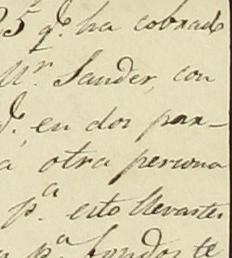 25 q.e ha cobrado
Mr. Sander, con
en dos par-
a otra persona
p.a esto llevaste
p.a fondos te